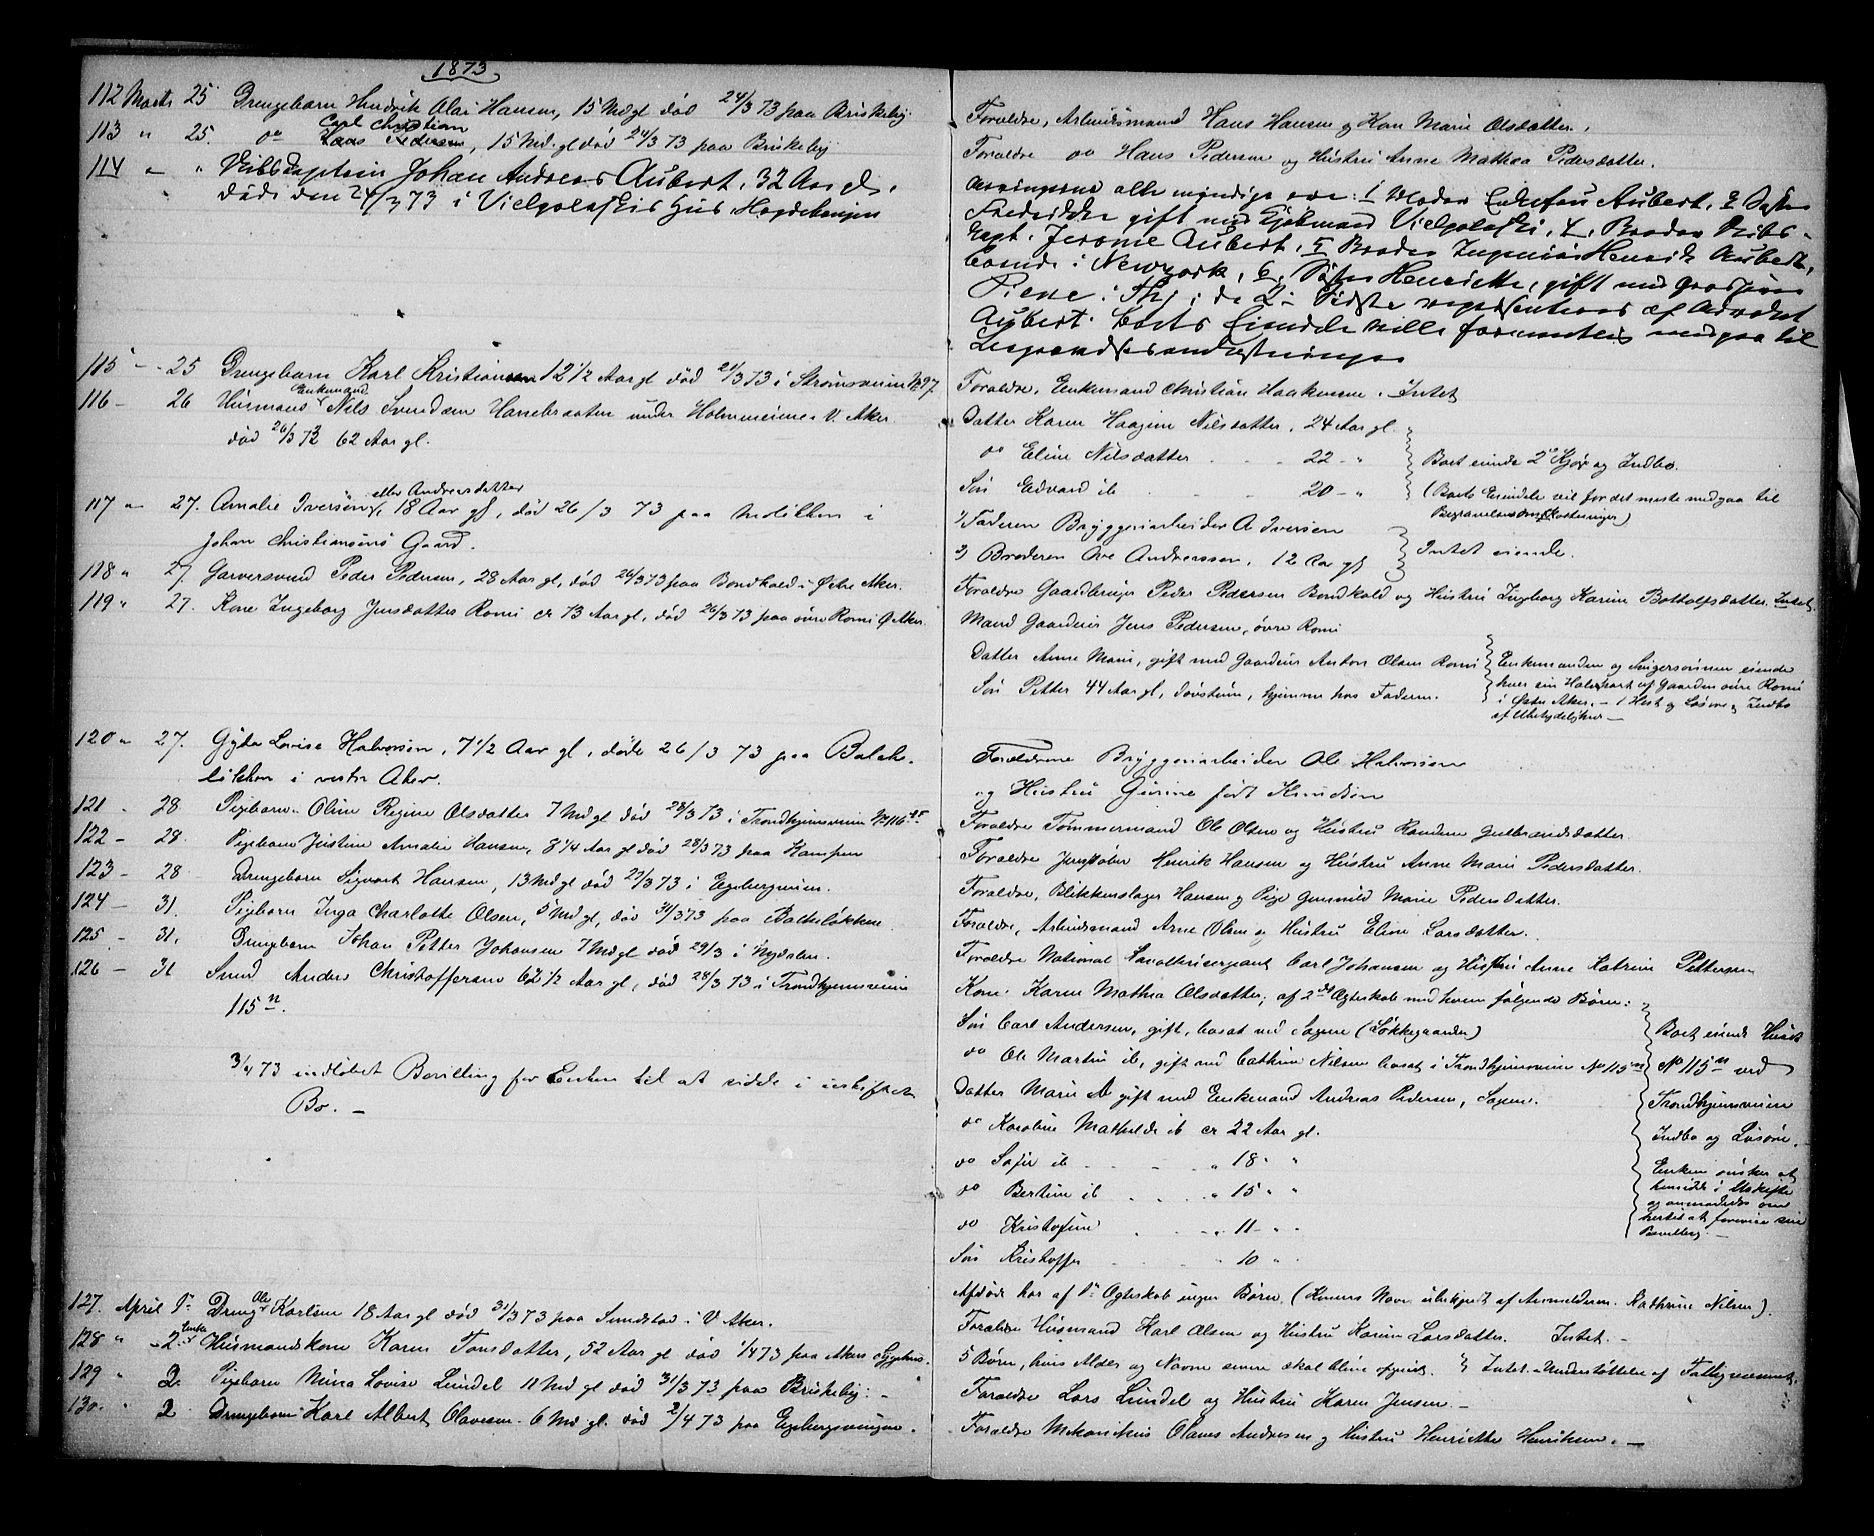 1873
112 Marts 25 Drengebarn Hendrik Olai Hansen, 15 Md gl død 24/3 73 paa Briskeby.
Forældre, Arbeidsmand Hans Hansen og Kone Marie Olsdatter.
113 " 25. do Carl Christian Pedersen, 15 Md. gl død 24/3 73 paa Briskeby
Forældre do Hans Pedersen og Hustru Anne Mathea Pedersdatter.
114 " " Skibscaptein Johan Andreas Aubert, 32 Aar gl.
døde den 24/3 73 i Vielgolaskis Hus Hægdehaugen
Arvingerne alle myndige ere: 1 Moder Enkefru Aubert, 2 Søster
Fredrikke gift med Kjøbmand Vielgolaski, 4, Broder Skibs-
Capt. Jerome Aubert, 5 Broder Ingeniør Henrik Aubert,
boende i Newyork, 6, Søster Henriette, gift med
Piene i Thj; de 2 sidste repræsenteres af Advokat
Aubert. Boets Eiendele ville formentlig medgaa til
115 " 25 Drengebarn Karl Kristiansen 12 1/2 Aar gl død 24/3 73 i Strømsveien No 97.
Forældre, Enkemand Christian Haakensen. Intet
116 - 26 Husmand Enkemand Nils Svendsen Hanebraaten under Holmmeiene V. Aker.
død 26/3 73 62 Aar gl.
Datter Karen Haagine Nilsdatter, 24 Aar gl.
do Eline Nilsdatter 22 - "
Søn Edvard ib 20 - "
Boet eiende 2 Kjør og Indbo.
(Boets Eiendele vil for det meste medgaa til
Begravelsesomkostninger)
117 " 27. Amalie Iversen, eller Andreasdatter 18 Aar gl, død 26/3 73 paa Møløkken i
Johan Christiansens Gaard.
1) Faderen Bryggeriarbeider A. Iversen
2) Broderen Ove Andreassen, 12 Aar gl
Intet eiende.
118 " 27. Garversvend Peder Pedersen, 28 Aar gl, død 26/3 73 paa Bondkald i Østre Aker.
Forældre Gaardbruger Peder Pedersen Bondkald og Hustru Ingeborg Karine Botholfsdatter. Intet.
119 " 27. Kone Ingeborg Jensdatter Romi cr 73 Aar gl, død 26/3 73 paa øvre Romi Ø. Aker.
Mand Gaardeier Jens Pedersen, øvre Romi
Datter Anne Marie, gift med Gaardeier Anton Olsen Romi
Søn Petter 44 Aar gl, døvstum, hjemme hos Faderen.
Enkemanden og Svigersønnen eiende
hver sin Halvpart af Gaarden øvre Romi
i Østre Aker. - 1 Hest og Løsøre og Indbo
af Ubetydelighed -
120 " 27. Gyda Lovise Halvorsen, 7 1/2 Aar gl, døde 26/3 73 paa Balche-
løkken i vestre Aker.
Forældrene Bryggeriarbeider Ole Halvorsen
og Hustru Gurine født Knudsen
121 - 28 Pigebarn Oline Regine Olsdatter 7 Md gl død 28/3 73 i Trondhjemsveien No 116
Forældre Tømmermand Ole Olsen og Hustru Gulbrandsdatter.
122 - 28. Pigebarn Justine Amalie Hansen, 3 1/4 Aar gl død 28/3 73 paa Kampen
Forældre Jernstøber Henrik Hansen og Hustru Anne Marie Pedersdatter.
123 - 28 Drengebarn Sigvart Hansen, 13 Md gl død 27/3 73 i Egebergveien.
Forældre, Blikkenslager Hansen og Pige Gunnild Marie Pedersdatter.
124 - 31. Pigebarn Inga Charlotte Olsen, 5 Md gl, død 31/3 73 paa Balkeløkken
Forældre, Arbeidsmand Arne Olsen og Hustru Eline Larsdatter.
125 - 31. Drengebarn Johan Petter Johansen 7 Md gl død 29/3 i Nydalen.
Forældre National Kavallerisergeant Carl Johansen og Hustru Anne Katrine Pettersen
126 - 31 Smed Anders Christoffersen 62 1/2 Aar gl, død 28/3 73 i Trondhjemsveien
115 n.
Kone Karen Mathea Olsdatter; af 2det Ægteskab med hende følgende Børn:
Søn Carl Andersen, gift, bosat ved Sagene (Løkkegaarden)
do Ole Martin ib, gift med Cathrine Nilsen bosat i Trondhjemsveien No 115 n
Datter Marie A gift med Enkemand Andreas Pedersen, Sagene.
do Karoline Mathilde ib cr 22 Aar gl.
do Sofie ib " 18 " "
do Bertine ib " 15 " "
do Kristofine " 11 - "
Søn Kristoffer " 10 "
Boet eiende Huset
No 115 n ved
Trondhjemsveien
Indbo og Løsøre.
Enken ønsker at
hensidde i Uskiftet
og anmodedes om
hertil at forevise sin
Bevilling. -
3/4 73 indløbet Bevilling for Enken til at sidde i uskiftet
Bo. -
Afdøde har af 1ste Ægteskab ingen Børn. (Konens Navn ubekjent af Anmelderen. Kathrine Nilsen).
127. April 1. Dreng Ole Karlsen 18 Aar gl død 31/3 73 paa Smedstad i V. Aker.
Forældre Husmand Karl Olsen og Hustru Karine Larsdatter. Intet. -
128 " 2. Enke Husmandskone Karen Tonsdatter, 52 Aar gl død 1/4 73 paa Akers Sygehus.
5 Børn, hvis Alder og Navne senere skal blive opgivet. Intet. Understøttelse af Fattigvæsenet.
129 " 2. Pigebarn Nina Lovise Lundel 11 Md gl død 31/3 73 paa Briskeby. -
Forældre Lars Lundel og Hustru Karen Jensen. -
130. " 2 Drengebarn Karl Albert Olavesen 6 Md gl. død 2/4 73 paa Egebergsveien.
Forældre Mekanikus Olaves Andresen og Hustru Henriette Henriksen. -